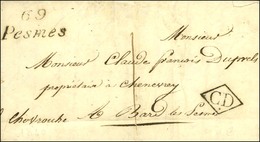 69
Pesmes
Monsieur
Monsieur Claude françois Duprel
propriétaire à Chenevrey
C.D.
Chevroche à Bard les Pesmes